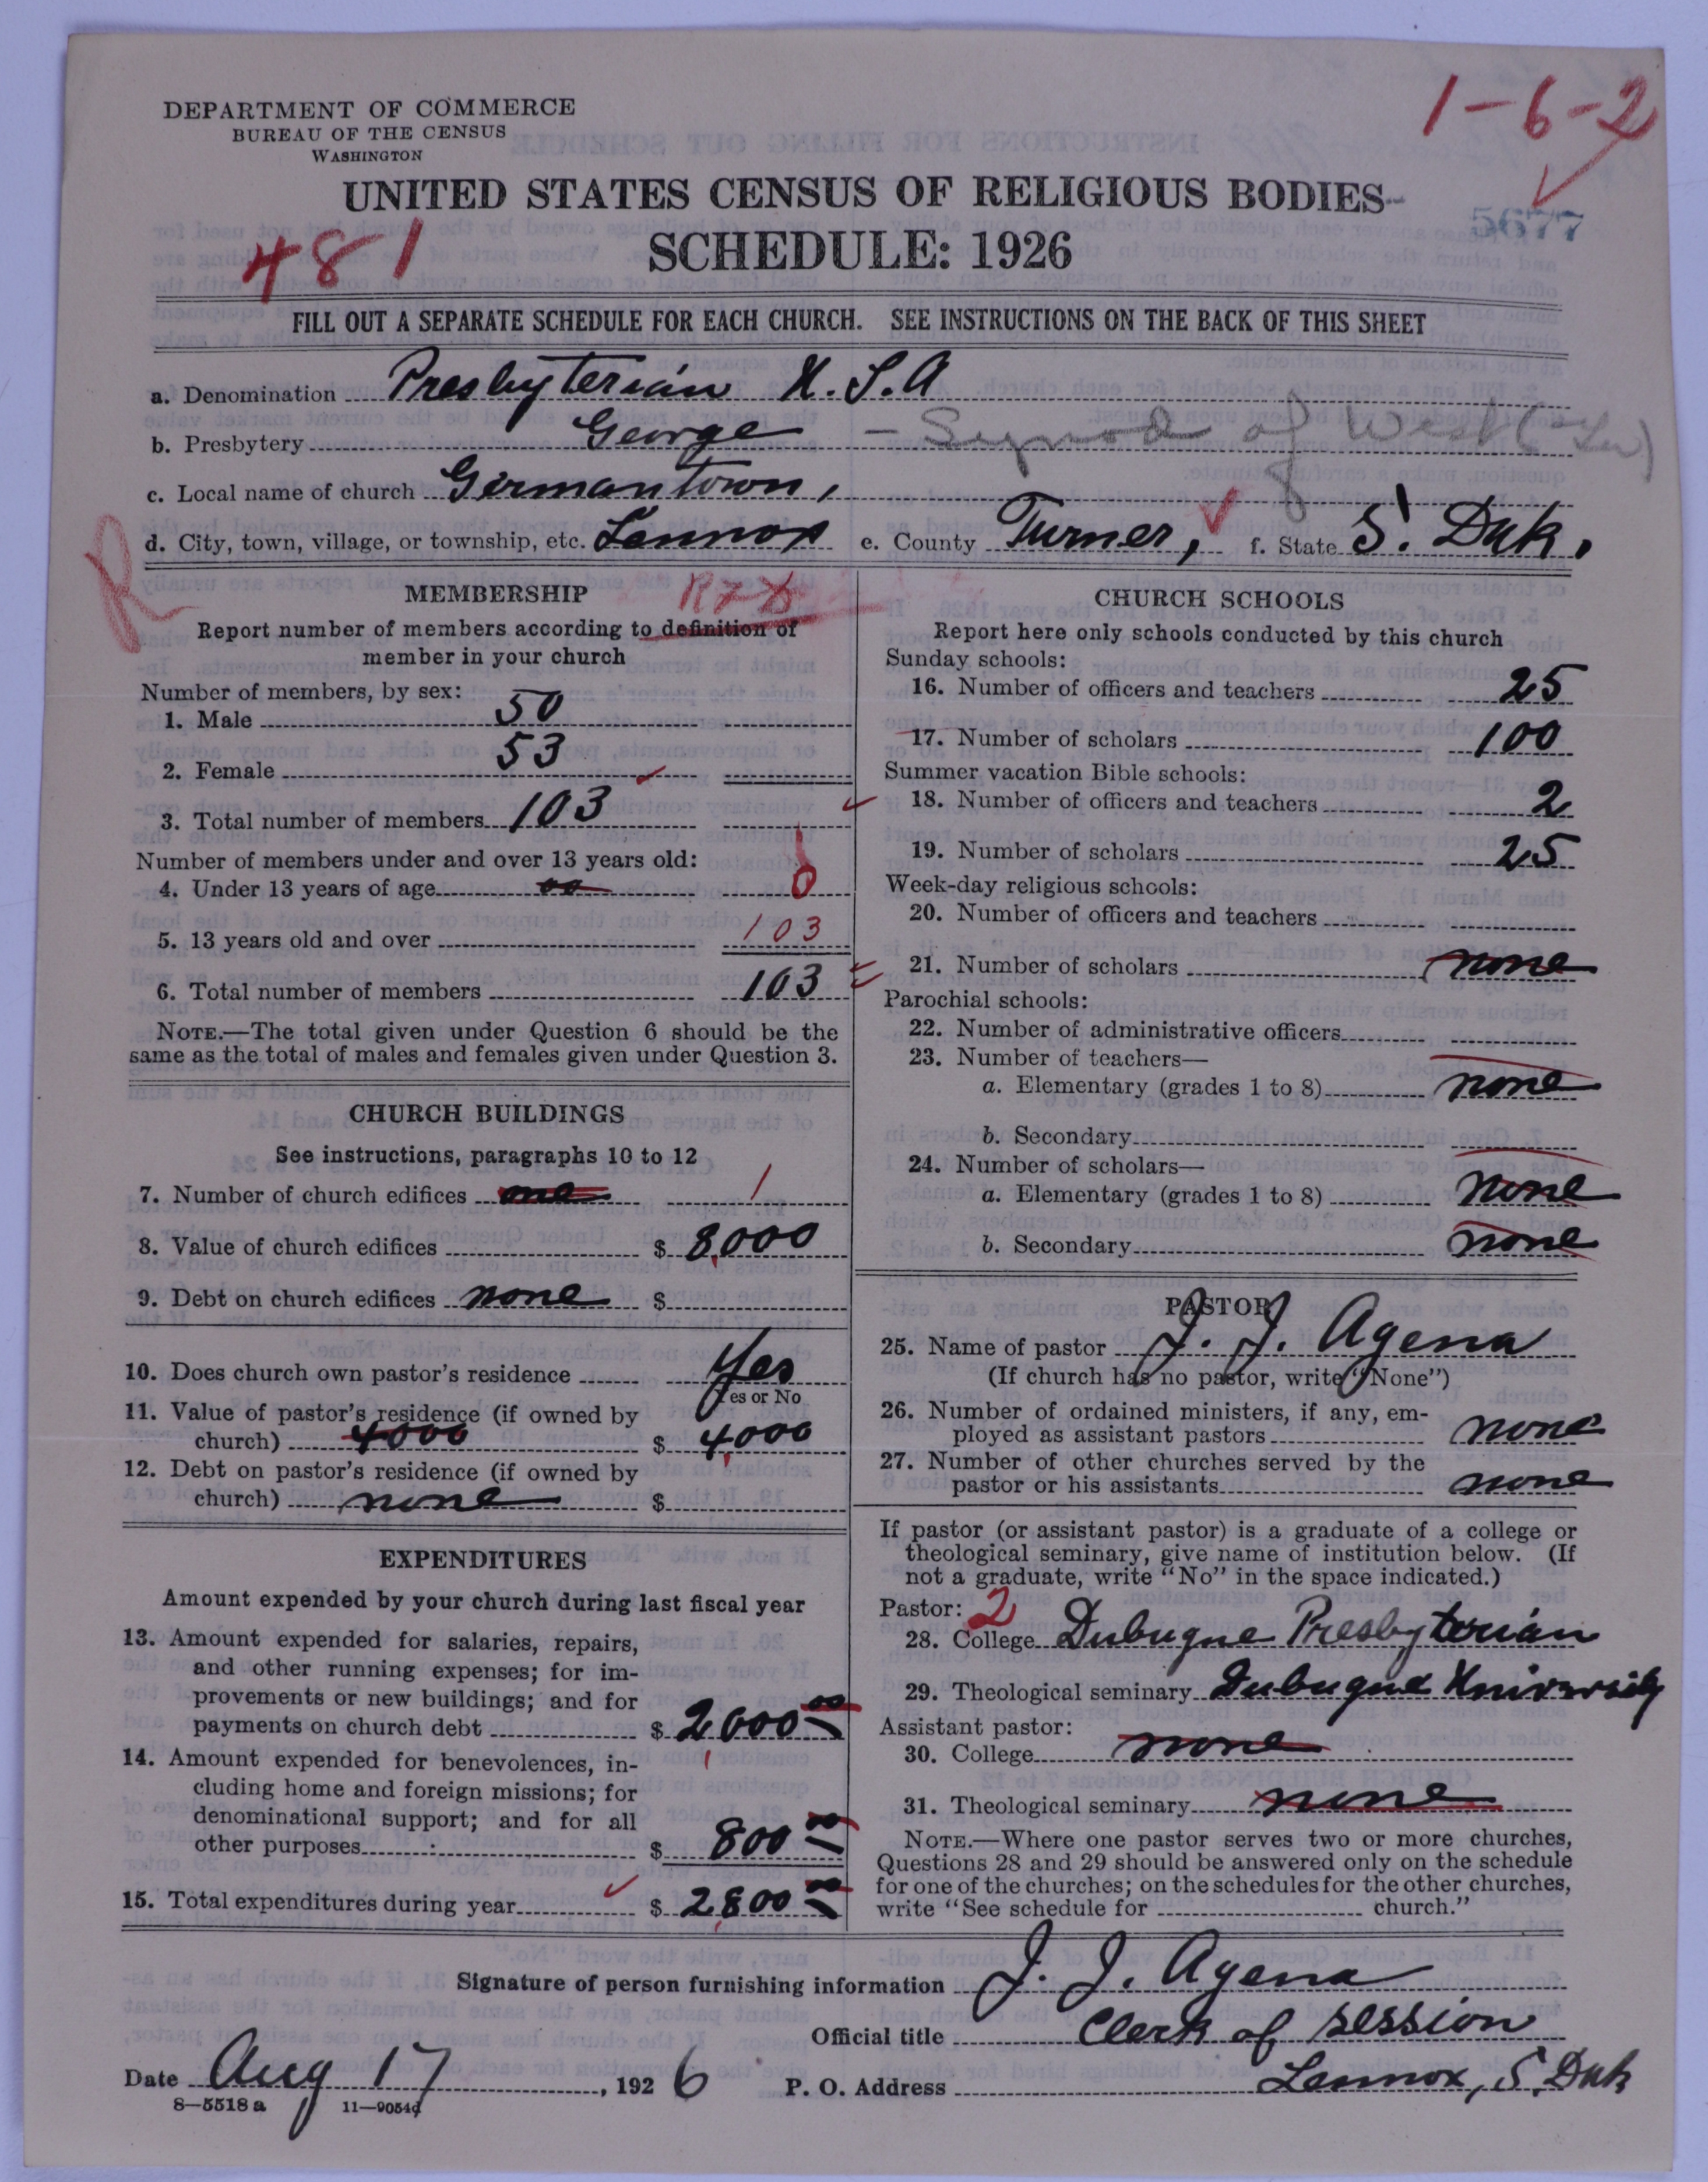 DEPARTMENT OF COMMERCE
BUREAU OF THE CENSUS
WASHINGTON
1-6-2
UNITED STATES CENSUS OF RELIGIOUS BODIES
5677
481
SCHEDULE: 1926
FILL OUT A SEPARATE SCHEDULE FOR EACH CHURCH. SEE INSTRUCTIONS ON THE BACK OF THIS SHEET
a. Denomination Presbyterian U.S.A
b. Presbytery George - Synod of West
c. Local name of church Germantown,
d. City, town, village, or township, etc. Lennox e. County Turner, f. State S. Dak.
R
MEMBERSHIP
Report number of members according to definition of
member in your church
Number of members, by sex:
1. Male 50
2. Female 53
3. Total number of members 103
Number of members under and over 13 years old:
4. Under 13 years of age 00 0
5. 13 years old and over 103
6. Total number of members 103
NOTE.—The total given under Question 6 should be the
same as the total of males and females given under Question 3.
CHURCH BUILDINGS
See instructions, paragraphs 10 to 12
7. Number of church edifices one 1
8. Value of church edifices $ 8,000
9. Debt on church edifices none $
10. Does church own pastor's residence Yes
Yes or No
11. Value of pastor's residence (if owned by
church) 4000 $ 4,000
12. Debt on pastor's residence (if owned by
church) none $
EXPENDITURES
Amount expended by your church during last fiscal year
13. Amount expended for salaries, repairs,
and other running expenses; for im-
provements or new buildings; and for
payments on church debt $ 2,000 00
14. Amount expended for benevolences, in-
cluding home and foreign missions; for
denominational support; and for all
other purposes $ 800 00
15. Total expenditures during year $ 2,800 00
CHURCH SCHOOLS
Report here only schools conducted by this church
Sunday schools:
16. Number of officers and teachers 25
17. Number of scholars 100
Summer vacation Bible schools:
18. Number of officers and teachers 2
19. Number of scholars 25
Week-day religious schools:
20. Number of officers and teachers
21. Number of scholars none
Parochial schools:
22. Number of administrative officers
23. Number of teachers—
a. Elementary (grades 1 to 8) none
b. Secondary
24. Number of scholars—
a. Elementary (grades 1 to 8) none
b. Secondary none
PASTOR
25. Name of pastor J. J. Agena
(If church has no pastor, write "None")
26. Number of ordained ministers, if any, em-
ployed as assistant pastors none
27. Number of other churches served by the
pastor or his assistants none
If pastor (or assistant pastor) is a graduate of a college or
theological seminary, give name of institution below. (If
not a graduate, write "No" in the space indicated.)
Pastor: 2
28. College Dubuque Presbyterian
29. Theological seminary Dubuque University
Assistant pastor:
30. College none
31. Theological seminary none
NOTE.—Where one pastor serves two or more churches,
Questions 28 and 29 should be answered only on the schedule
for one of the churches; on the schedules for the other churches,
write "See schedule for church."
Signature of person furnishing information J. J. Agena
Official title Clerk of session
Date Aug 17, 1926 P. O. Address Lennox, S. Dak
8—5518 a 11—9054